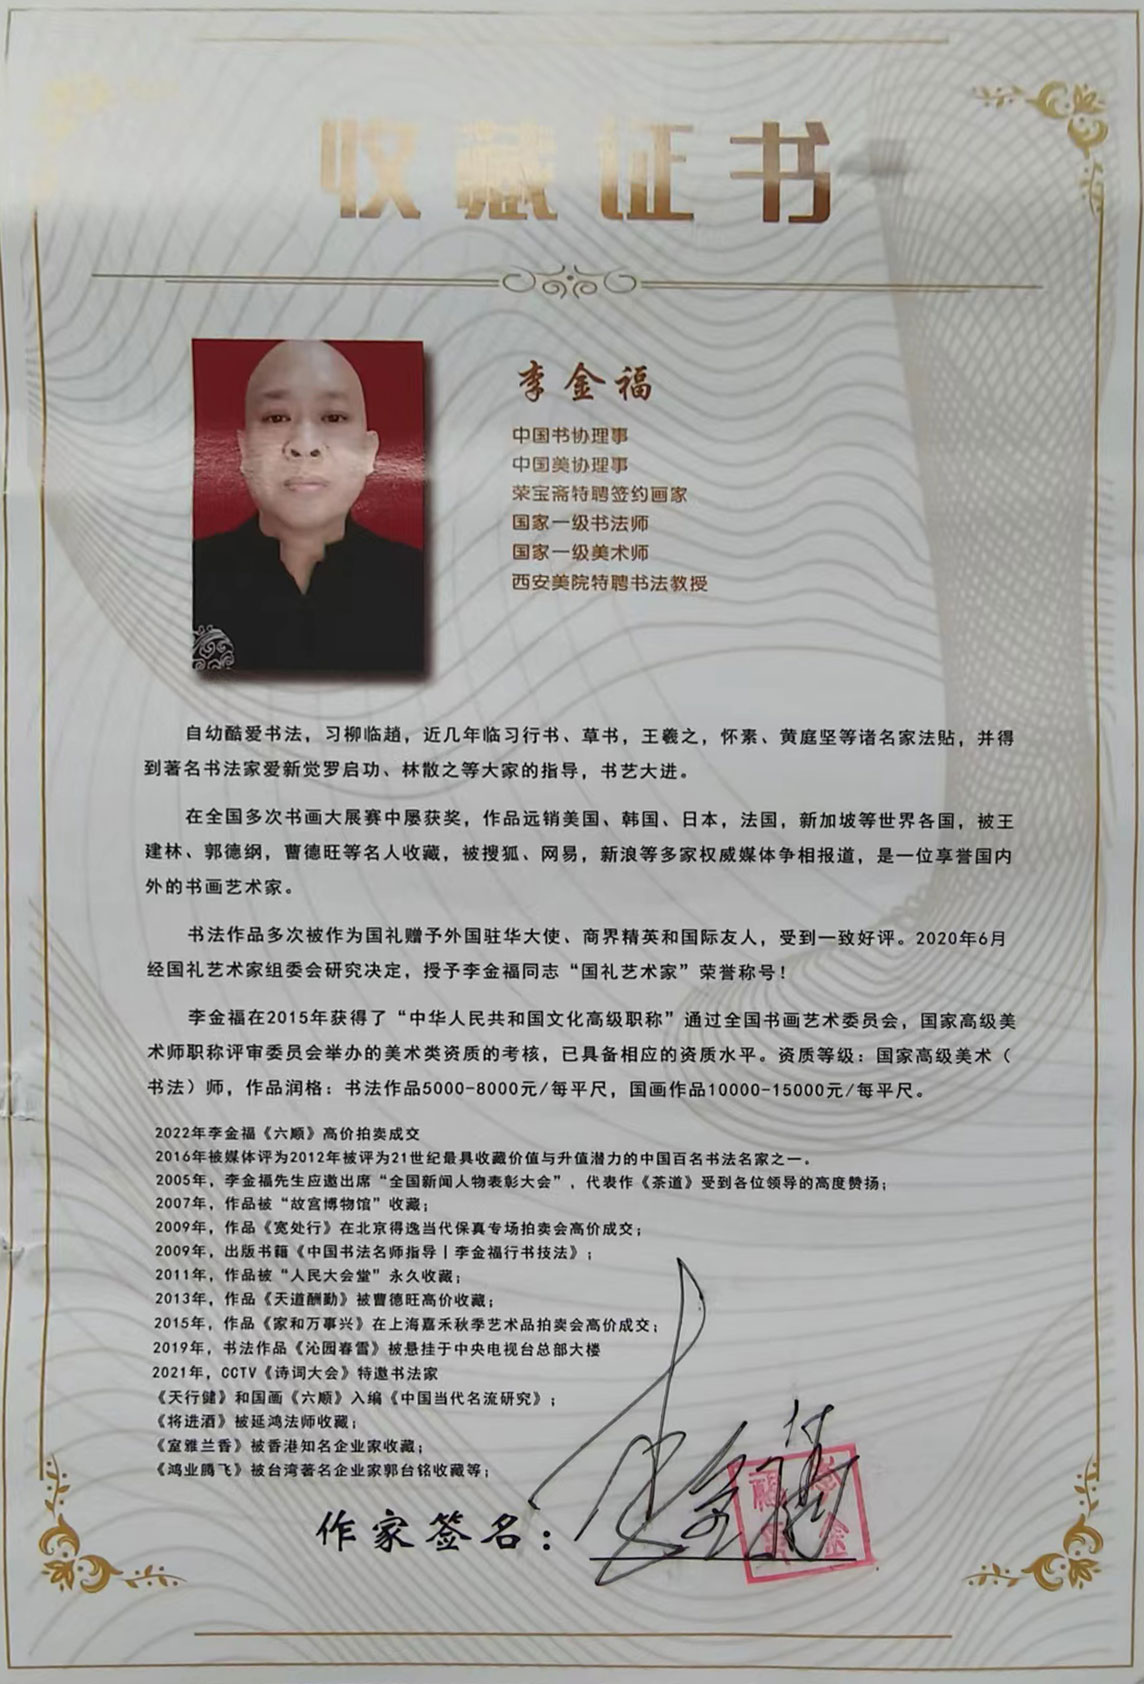 收藏证书
李金福
中国书协理事
中国美协理事
荣宝斋特聘签约画家
国家一级书法师
国家一级美术师
西安美院特聘书法教授
自幼酷爱书法，习柳临趙，近几年临习行书、草书，王羲之，怀素、黄庭坚等诸名家法貼，并得
到著名书法家爱新觉罗启功、林散之等大家的指导，书艺大进。
在全国多次书画大展赛中屡获奖，作品远销美国、韩国、日本，法国，新加坡等世界各国，被王
建林、郭德纲，曹德旺等名人收藏，被搜狐、网易，新浪等多家权威媒体争相报道，是一位享誉国内
外的书画艺术家。
书法作品多次被作为国礼赠予外国驻华大使、商界精英和国际友人，受到一致好评。2020年6月
经国礼艺术家组委会研究决定，授予李金福同志“国礼艺术家”荣誉称号！
李金福在2015年获得了“中华人民共和国文化高级职称”通过全国书画艺术委员会，国家高级美
术师职称评审委员会举办的美术类资质的考核，已具备相应的资质水平。资质等级：国家高级美术（
书法）师，作品润格：书法作品5000-8000元/每平尺，国画作品10000-15000元/每平尺。
2022年李金福《六顺》高价拍卖成交
2016年被媒体评为2012年被评为21世纪最具收藏价值与升值潜力的中国百名书法名家之一。
2005年，李金福先生应邀出席“全国新闻人物表彰大会”，代表作《茶道》受到各位领导的高度赞扬；
2007年，作品被“故宫博物馆”收藏；
2009年，作品《宽处行》在北京得逸当代保真专场拍卖会高价成交；
2009年，出版书籍《中国书法名师指导丨李金福行书技法》；
2011年，作品被“人民大会堂”永久收藏；
2013年，作品《天道酬勤》被曹德旺高价收藏；
2015年，作品《家和万事兴》在上海嘉禾秋季艺术品拍卖会高价成交；
2019年，书法作品《沁园春雪》被悬挂于中央电视台总部大楼
2021年，CCTV《诗词大会》特邀书法家
《天行健》和国画《六顺》入编《中国当代名流研究》；
《将进酒》被延鸿法师收藏；
《室雅兰香》被香港知名企业家收藏；
《鸿业腾飞》被台湾著名企业家郭台铭收藏等；
作家签名：李金福